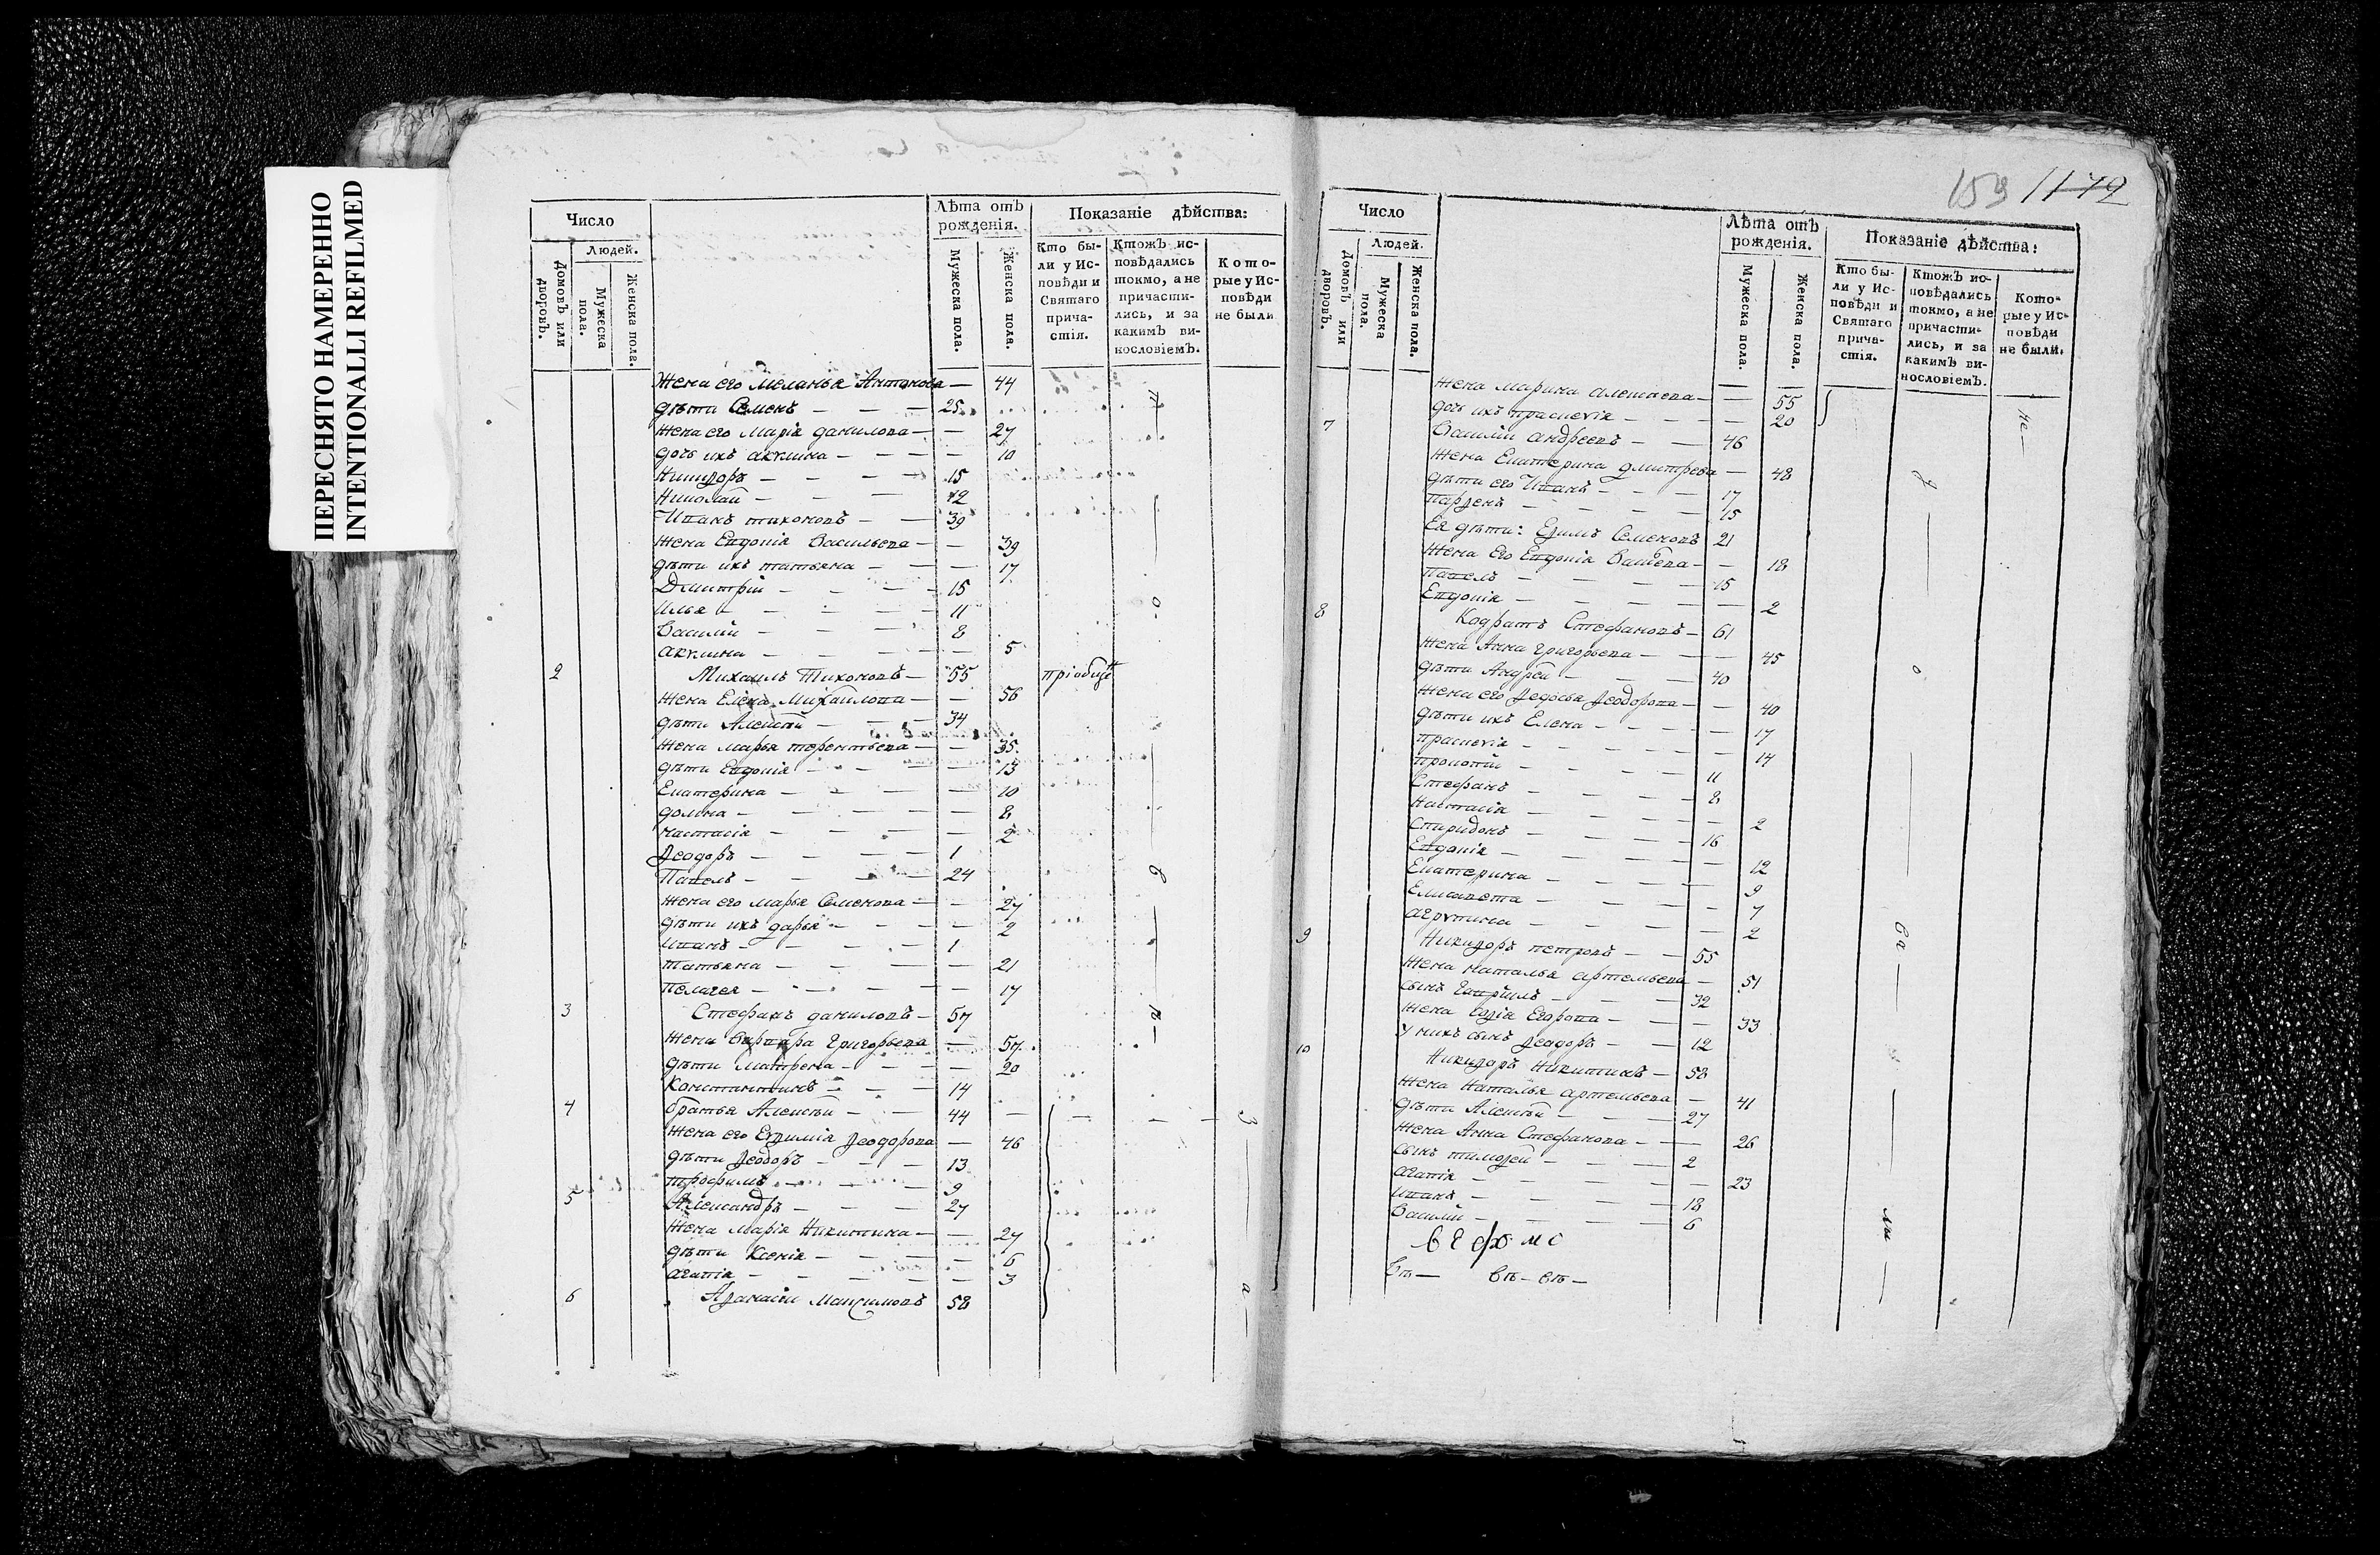 ПЕРЕСНЯТО НАМЕРЕННО
INTENTIONALLI REFILMED
Число
Людей.
Домовъ или дворовъ.
Мужеска пола.
Женска пола.
Лѣта отъ рожденія.
Мужеска пола.
Женска пола.
Показаніе дѣйства:
Кто бы-
ли у Ис-
повѣди и
Святаго
прича-
стія.
Ктожъ ис-
повѣдались
токмо, а не
причасти-
лись, и за
какимъ ви-
нословіемъ.
Кото-
рые у Ис-
повѣди
не были
Жена его Меланья Антонова — 44
дѣти Семенъ — — — 25
жена его Марія данилова — — 27
дочь ихъ акулина — — — 10
Никифоръ — — — 15
Николай — — — 12
Иванъ тихоновъ — — 39
жена Евдокія Васильева — — 39
дѣти ихъ татьяна — — — 17
Дмитрій — — — 15
Илья — — — 11
Василій — — — 8
акулина — — — 5
2 Михаилъ Тихоновъ — 55
жена Елена Михайлова — — 56
дѣти Алексѣй — — — 34
жена марья терентьева — — 35
дѣти Евдокія — — — 13
Екатерина — — — 10
домна — — — 8
настасія — — — 2
Ѳеодоръ — — — 1
Павелъ — — — 24
жена его марья Семенова — — 27
дѣти ихъ дарья — — — 2
иванъ — — — 1
татьяна — — — 21
пелагея — — — 17
3 Стефанъ даниловъ — 57
жена Варвара Григорьева — 57
дѣти Матрена — — — 20
Константинъ — — — 14
4 братья Алексѣй — — 44
жена его Евѳимія Ѳеодорова — 46
дѣти Ѳеодоръ — — — 13
трофимъ — — — 9
5 Александръ — — — 27
жена марія Никитина — — 27
дѣти Ксенія — — — 6
агапія — — — 3
6 Аѳанасій Максимовъ 58
159 1172
Число
Людей.
Домовъ или дворовъ.
Мужеска пола.
Женска пола.
Лѣта отъ рожденія.
Мужеска пола.
Женска пола.
Показаніе дѣйства:
Кто бы-
ли у Ис-
повѣди и
Святаго
прича-
стія.
Ктожъ ис-
повѣдались
токмо, а не
причасти-
лись, и за
какимъ ви-
нословіемъ.
Кото-
рые у Ис-
повѣди
не были.
жена марина алексѣева — — 55
дочь ихъ праскевія — — — 20
7 Василій андреевъ — — 46
жена Екатерина дмитрева — 48
дѣти его Иванъ — — — 17
парѳенъ — — — 15
Ея дѣти: Еѳимъ Семеновъ 21
жена его Евдокія — — 18
Павелъ — — — 15
Евдокія — — — 2
8 Кодратъ Стефановъ — 61
жена Анна григорьева — — 45
дѣти Андрей — — — 40
жена его Ѳедосья Ѳеодорова — — 40
дѣти ихъ Елена — — — 17
праскевія — — — 14
прокопій — — — 11
Стефанъ — — — 8
Настасія — — — 2
Спиридонъ — — — 16
Евдокія — — — 12
Екатерина — — — 9
Елисавета — — — 7
агрипина — — — 2
9 Никифоръ петровъ — — 55
жена наталья артемьева — 51
сынъ гавріилъ — — — 32
жена Егорова — — 33
у нихъ сынъ Ѳеодоръ — — 12
10 Никифоръ Никитинъ — 58
жена Наталья артемьева — 41
дѣти Алексѣй — — — 27
жена Анна Стефанова — — 26
сынъ тимоѳей — — — 2
агапія — — — 23
иванъ — — — 18
Василій — — — 6